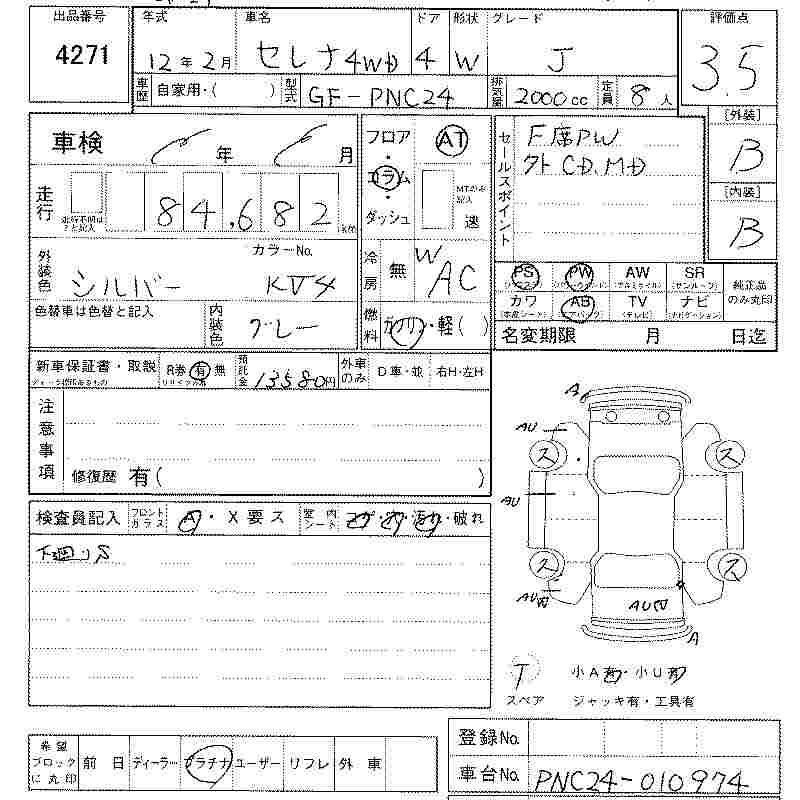 出品番号 年式 車名 ドア 形状 グレード 評価点
4271 12年2月 セレナ4WD 4 W J 3.5
車歴 自家用・( ) 型式 GF-PNC24 排気量 2000cc 定員 8人
[外装]
B
[内装]
B
車検 年 月
フロア・コラム・ダッシュ AT
MTのみ記入 速
セールスポイント
F席PW
クト CD、MD
走行 84,682 km
走行不明は?と記入
外装色 シルバー カラーNo. KV4
冷房 無 WAC
PS PW AW SR 純正品のみ丸印
(パワステ) (パワーウィンドウ) (アルミホイル) (サンルーフ)
カワ AB TV ナビ
(本皮シート) (エアバック) (テレビ) (ナビゲーション)
色替車は色替と記入 内装色 グレー
燃料 ガソリン・軽( )
名変期限 月 日迄
新車保証書・取説 R券 有 無 預託金 13580円 外車のみ D車・並 右H・左H
注意事項
修復歴 有( )
検査員記入 フロントガラス A・X要ス 室内シート コゲ・・汚れ・破れ
下廻りS
A
AU
ス ス
AU
ス ス
AUW
AUW
A
T
スペア
小A有・小U有
ジャッキ有・工具有
希望ブロックに丸印 前日 ディーラー プラチナ ユーザー リフレ 外車
登録No.
車台No. PNC24-010974